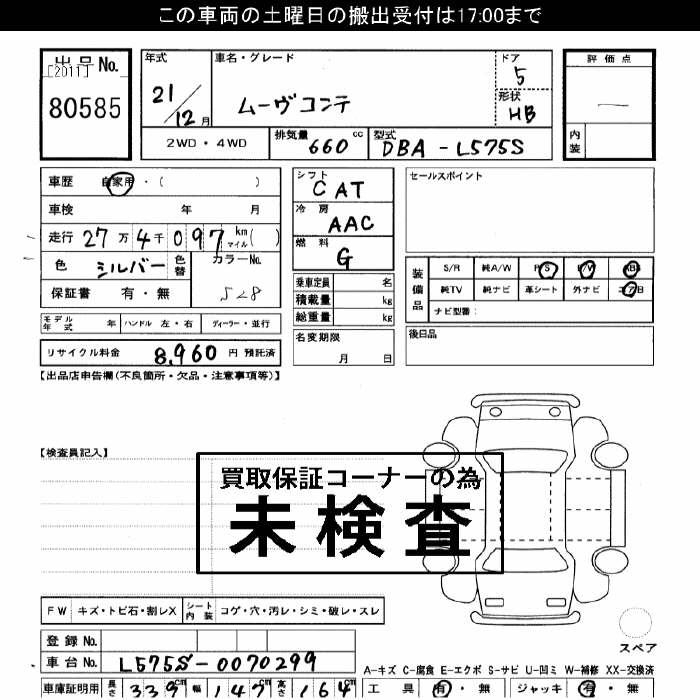 この車両の土曜日の搬出受付は17:00まで
出品No.
[2011]
80585
年式
21/12月
車名・グレード
ムーヴコンテ
ドア
5
形状
HB
評価点
—
内装
2WD・4WD
排気量 660 cc
型式 DBA-L575S
車歴 自家用・( )
車検 年 月
走行 27万4千097 km マイル( )
色 シルバー 色替 カラーNo. S28
保証書 有・無
シフト
CAT
冷房
AAC
燃料
G
乗車定員 名
積載量 kg
総重量 kg
名変期限
月 日
セールスポイント
装備品
S/R 純A/W P/S P/W ABS
純TV 純ナビ 革シート 外ナビ エアB
ナビ型番:
後日品
モデル年式 年 ハンドル 左・右 ディーラー・並行
リサイクル料金 8,960 円 預託済
【出品店申告欄(不良箇所・欠品・注意事項等)】
【検査員記入】
買取保証コーナーの為
未検査
FW キズ・トビ石・割レX シート内装 コゲ・穴・汚レ・シミ・破レ・スレ
登録No.
車台No. L575S-0070299
スペア
A-キズ C-腐食 E-エクボ S-サビ U-凹ミ W-補修 XX-交換済
車庫証明用 長さ 339cm 幅 147cm 高さ 164cm
工具 有・無 ジャッキ 有・無